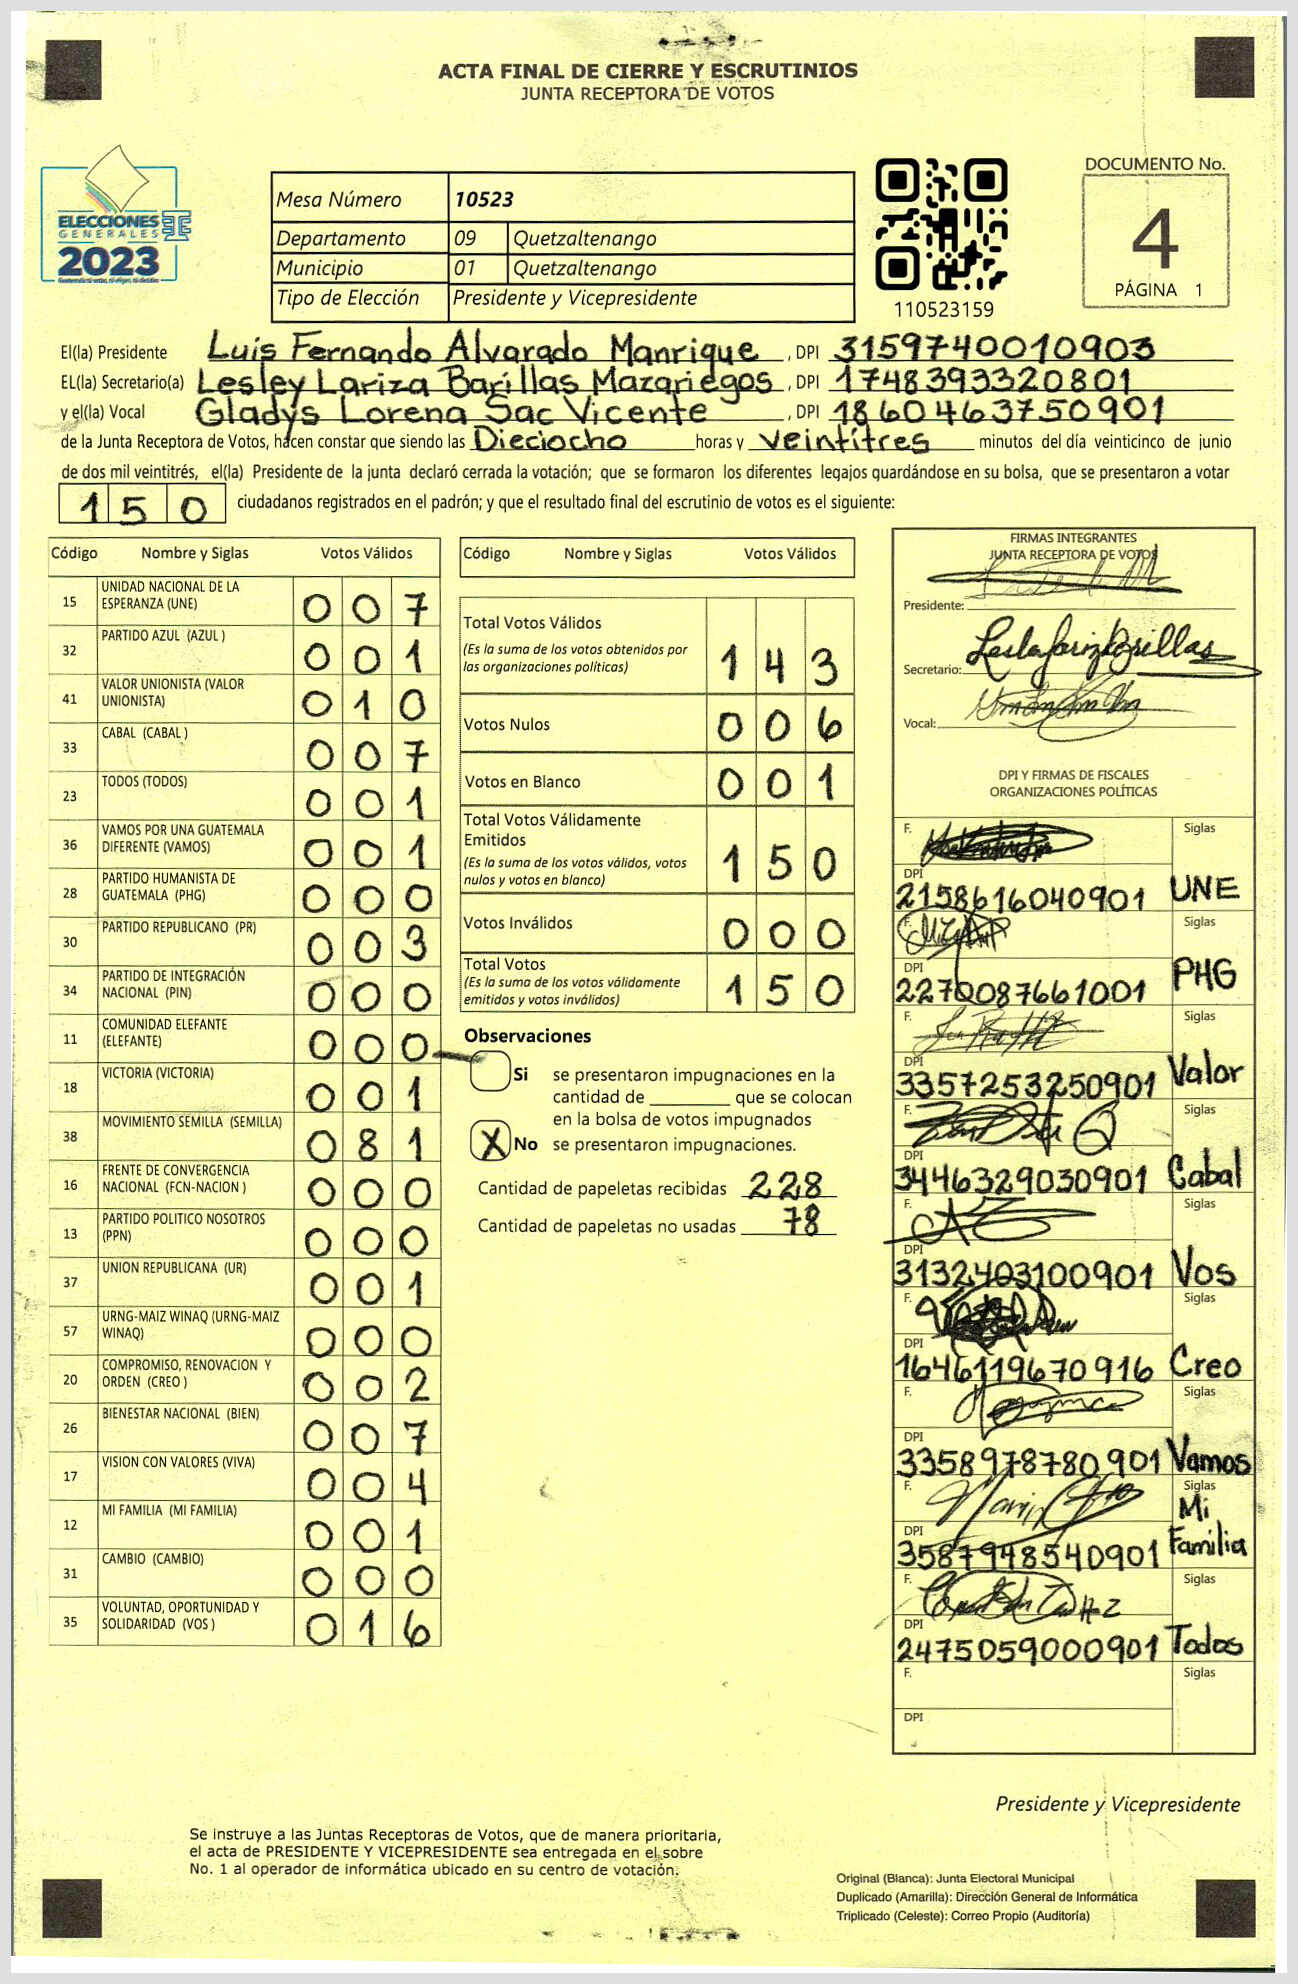 ACTA FINAL DE CIERRE Y ESCRUTINIOS
JUNTA RECEPTORA DE VOTOS
ELECCIONES
GENERALES
2023
TSE
Mesa Número 10523
Departamento 09 Quetzaltenango
Municipio 01 Quetzaltenango
Tipo de Elección Presidente y Vicepresidente
110523159
DOCUMENTO No.
4
PÁGINA 1
El(la) Presidente Luis Fernando Alvarado Manrique, DPI 3159740010903
EL(la) Secretario(a) Lesley Lariza Barillas Mazariegos, DPI 1748393320801
y el(la) Vocal Gladys Lorena Sac Vicente, DPI 1860463750901
de la Junta Receptora de Votos, hacen constar que siendo las Dieciocho horas y veintitres minutos del día veinticinco de junio
de dos mil veintitrés, el(la) Presidente de la junta declaró cerrada la votación; que se formaron los diferentes legajos guardándose en su bolsa, que se presentaron a votar
150 ciudadanos registrados en el padrón; y que el resultado final del escrutinio de votos es el siguiente:
Código Nombre y Siglas Votos Válidos
15 UNIDAD NACIONAL DE LA
ESPERANZA (UNE) 007
32 PARTIDO AZUL (AZUL ) 001
41 VALOR UNIONISTA (VALOR
UNIONISTA) 010
33 CABAL (CABAL ) 007
23 TODOS (TODOS) 001
36 VAMOS POR UNA GUATEMALA
DIFERENTE (VAMOS) 001
28 PARTIDO HUMANISTA DE
GUATEMALA (PHG) 000
30 PARTIDO REPUBLICANO (PR) 003
34 PARTIDO DE INTEGRACIÓN
NACIONAL (PIN) 000
11 COMUNIDAD ELEFANTE
(ELEFANTE) 000
18 VICTORIA (VICTORIA) 001
38 MOVIMIENTO SEMILLA (SEMILLA) 081
16 FRENTE DE CONVERGENCIA
NACIONAL (FCN-NACION ) 000
13 PARTIDO POLITICO NOSOTROS
(PPN) 000
37 UNION REPUBLICANA (UR) 001
57 URNG-MAIZ WINAQ (URNG-MAIZ
WINAQ) 000
20 COMPROMISO, RENOVACION Y
ORDEN (CREO ) 002
26 BIENESTAR NACIONAL (BIEN) 007
17 VISION CON VALORES (VIVA) 004
12 MI FAMILIA (MI FAMILIA) 001
31 CAMBIO (CAMBIO) 000
35 VOLUNTAD, OPORTUNIDAD Y
SOLIDARIDAD (VOS ) 016
Código Nombre y Siglas Votos Válidos
Total Votos Válidos
(Es la suma de los votos obtenidos por
las organizaciones políticas) 143
Votos Nulos 006
Votos en Blanco 001
Total Votos Válidamente
Emitidos
(Es la suma de los votos válidos, votos
nulos y votos en blanco) 150
Votos Inválidos 000
Total Votos
(Es la suma de los votos válidamente
emitidos y votos inválidos) 150
Observaciones
Si se presentaron impugnaciones en la
cantidad de ________ que se colocan
en la bolsa de votos impugnados
X No se presentaron impugnaciones.
Cantidad de papeletas recibidas 228
Cantidad de papeletas no usadas 78
FIRMAS INTEGRANTES
JUNTA RECEPTORA DE VOTOS
Presidente:
Secretario:
Vocal:
DPI Y FIRMAS DE FISCALES
ORGANIZACIONES POLÍTICAS
F. Siglas
DPI
2158616040901 UNE
F. Siglas
DPI
2270087661001 PHG
F. Siglas
DPI
3357253250901 Valor
F. Siglas
DPI
3446329030901 Cabal
F. Siglas
DPI
3132403100901 Vos
F. Siglas
DPI
1646119670916 Creo
F. Siglas
DPI
3358978780901 Vamos
F. Siglas
DPI
3587948540901 Mi Familia
F. Siglas
DPI
2475059000901 Todos
F. Siglas
DPI
Presidente y Vicepresidente
Se instruye a las Juntas Receptoras de Votos, que de manera prioritaria,
el acta de PRESIDENTE Y VICEPRESIDENTE sea entregada en el sobre
No. 1 al operador de informática ubicado en su centro de votación.
Original (Blanca): Junta Electoral Municipal
Duplicado (Amarilla): Dirección General de Informática
Triplicado (Celeste): Correo Propio (Auditoría)